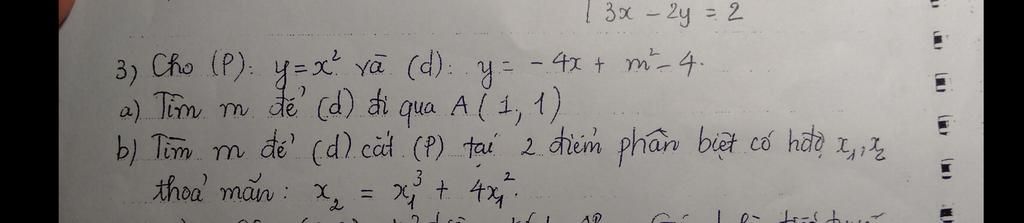 3x - 2y = 2
3) Cho (P): y = x² và (d): y = - 4x + m² - 4.
a) Tìm m để (d) đi qua A (1, 1)
b) Tìm m để (d) cắt (P) tại 2 điểm phân biệt có hđộ x₁, x₂
thoả mãn: x₂ = x₁³ + 4x₁².